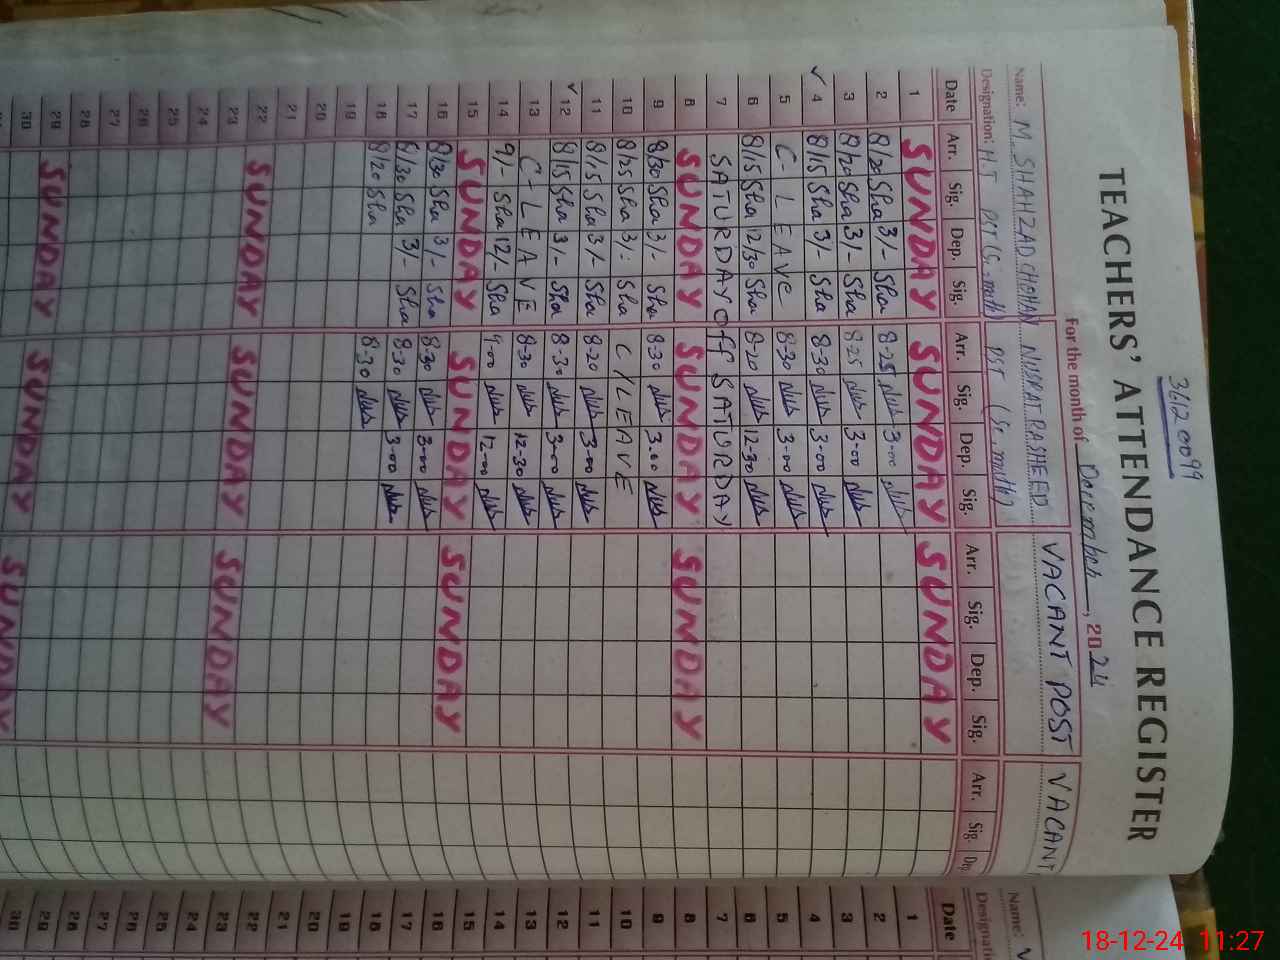 36120099
TEACHERS' ATTENDANCE REGISTER
For the month of December, 2024
Name: M. SHAHZAD CHOHAN NUSRAT RASHEED VACANT POST VACANT
Designation: H.T PST (Sr. math)
Date Arr. Sig. Dep. Sig. Arr. Sig. Dep. Sig. Arr. Sig. Dep. Sig. Arr. Sig. Dep.
1 SUNDAY SUNDAY SUNDAY
2 8/20 Sha 3/- Sha 8-25 Nus 3-00 Nus
3 8/20 Sha 3/- Sha 8-25 Nus 3-00 Nus
4 8/15 Sha 3/- Sha 8-30 Nus 3-00 Nus
5 C-LEAVE 8-30 Nus 3-00 Nus
6 8/15 Sha 12/30 Sha 8-20 Nus 12-30 Nus
7 SATURDAY OFF SATURDAY
8 SUNDAY SUNDAY SUNDAY
9 8/30 Sha 3/- Sha 8-30 Nus 3.00 Nus
10 8/25 Sha 3/- Sha C/LEAVE
11 8/15 Sha 3/- Sha 8-20 Nus 3-00 Nus
12 8/15 Sha 3/- Sha 8-30 Nus 3-00 Nus
13 C-LEAVE 8-30 Nus 12-30 Nus
14 9/- Sha 12/- Sha 9-00 Nus 12-00 Nus
15 SUNDAY SUNDAY SUNDAY
16 8/30 Sha 3/- Sha 8-30 Nus 3-00 Nus
17 8/30 Sha 3/- Sha 8-30 Nus 3-00 Nus
18 8/20 Sha 8-30 Nus
19
20
21
22 SUNDAY SUNDAY
23 SUNDAY
24
25
26
27
28
29 SUNDAY SUNDAY
30 SUNDAY
Name:
Designation
Date
1
2
3
4
5
6
7
8
9
10
11
12
13
14
15
16
17
18
19
20
21
22
23
24
25
26
27
28
29
30
18-12-24 11:27